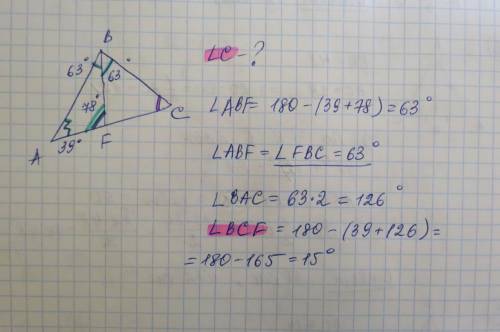 B
63° 63°
78°
C
A 39° F
LC - ?
LABF = 180 - (39 + 78) = 63°
LABF = LFBC = 63°
LBAC = 63 · 2 = 126°
LBCF = 180 - (39 + 126) =
= 180 - 165 = 15°